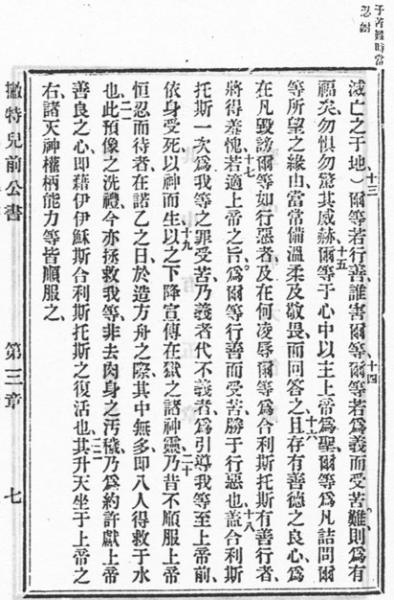 于苦難時當
忍耐
滅亡之于地）十三爾等若行善誰害爾等十四爾等若爲義而受苦難則爲有
福矣勿惧勿驚其威赫十五爾等于心中以主上帝爲聖爾等爲凡詰問爾
等所望之緣由當常備溫柔及敬畏而回答之十六且存有善德之良心爲
在凡毀謗爾等如行惡者及在何凌辱爾等爲合利斯托斯有善行者
將得羞愧十七若適上帝之旨爲爾等行善而受苦勝于行惡也十八蓋合利斯
托斯一次爲我等之罪受苦乃義者代不義者爲引導我等至上帝前
依身受死以神而生十九以之下降宣傳在獄之諸神靈二十乃昔不順服上帝
恒忍而待者在諾乙之日於造方舟之際其中無多即八人得救于水
也二一此預像之洗禮今亦拯救我等非去肉身之汚穢乃爲約許獻上帝
善良之心即藉伊伊穌斯合利斯托斯之復活也二二其升天坐于上帝之
右諸天神權柄能力等皆順服之
撤特兒前公書
第三章
七